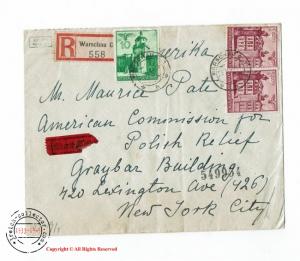 Amerika
R
Warschau C
558
10
Mr. Maurice Pate
American Commission for
Polish Relief
Graybar Building
549054
420 Lexington Ave (426)
New York City
Copyright © All Rights Reserved